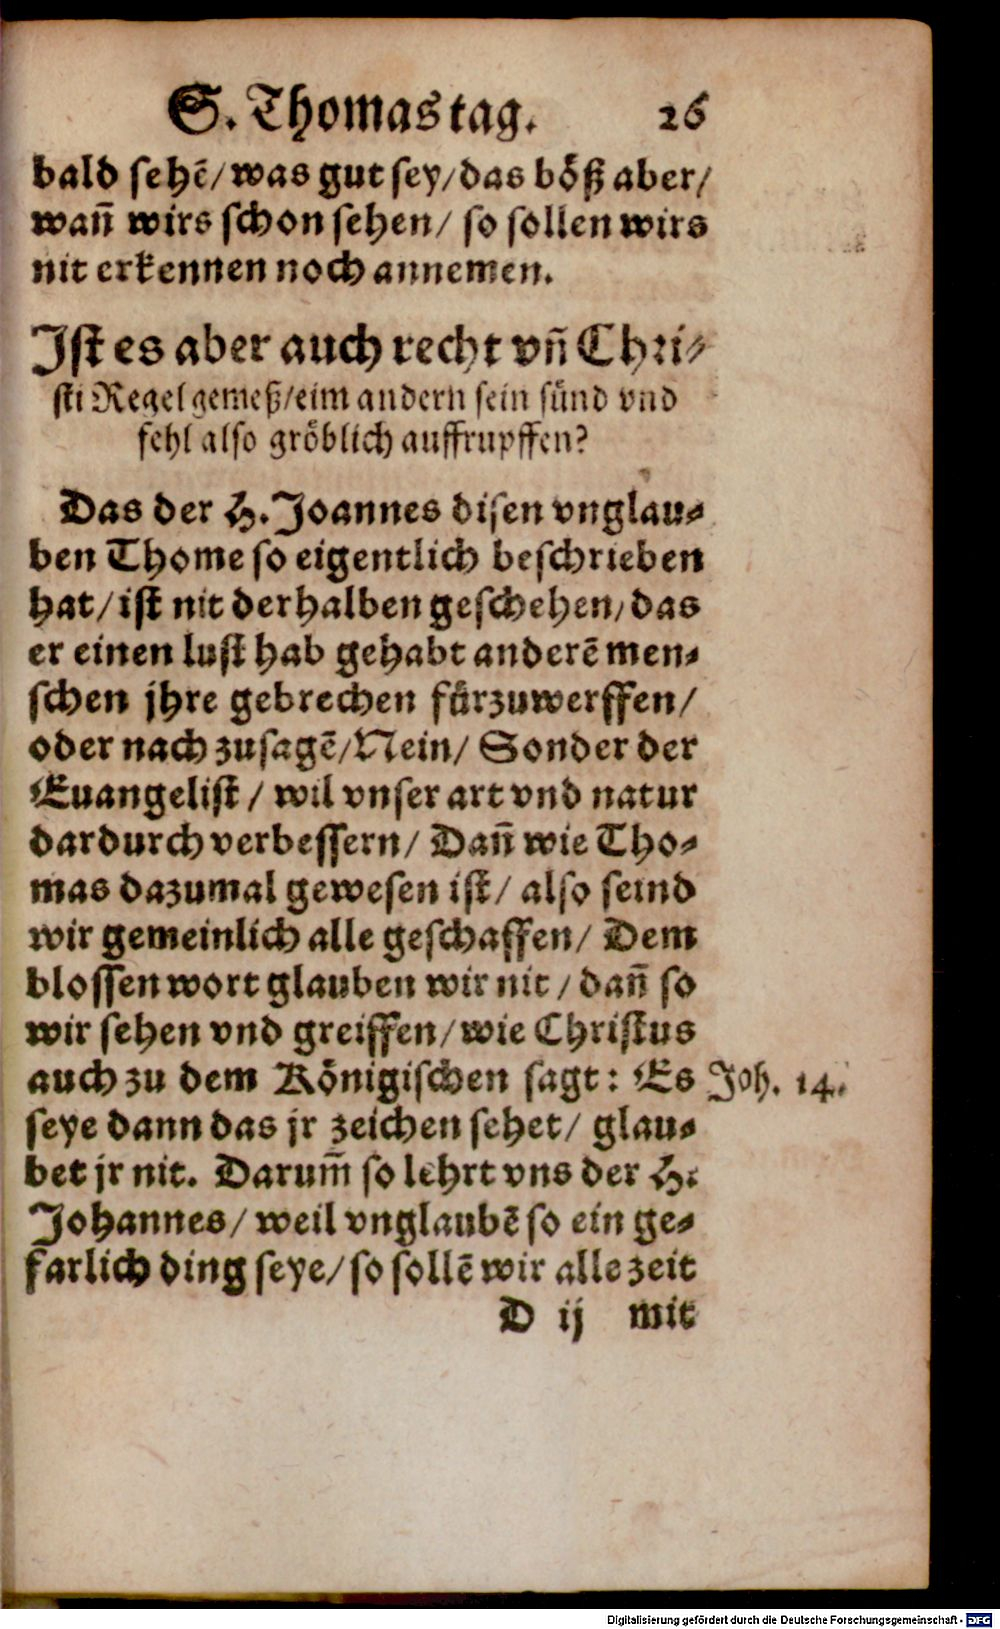 S. Thomas tag. 26
bald sehē/ was gut sey/ das böß aber/
wañ wirs schon sehen/ so sollen wirs
nit erkennen noch annemen.
Ist es aber auch recht vñ Chri-
sti Regel gemeß/ eim andern sein sünd vnd
fehl also gröblich auffrupffen?
Das der H. Joannes disen vnglau-
ben Thome so eigentlich beschrieben
hat/ ist nit derhalben geschehen/ das
er einen lust hab gehabt anderē men-
schen jhre gebrechen fürzuwerffen/
oder nach zusagē/ Nein/ Sonder der
Euangelist/ wil vnser art vnd natur
dardurch verbessern/ Dañ wie Tho-
mas dazumal gewesen ist/ also seind
wir gemeinlich alle geschaffen/ Dem
blossen wort glauben wir nit/ dañ so
wir sehen vnd greiffen/ wie Christus
auch zu dem Königischen sagt: Es Joh. 14.
seye dann das jr zeichen sehet/ glau-
bet jr nit. Darum̄ so lehrt vns der H.
Johannes/ weil vnglaubē so ein ge-
farlich ding seye/ so sollē wir alle zeit
D ij mit
Digitalisierung gefördert durch die Deutsche Forschungsgemeinschaft - DFG